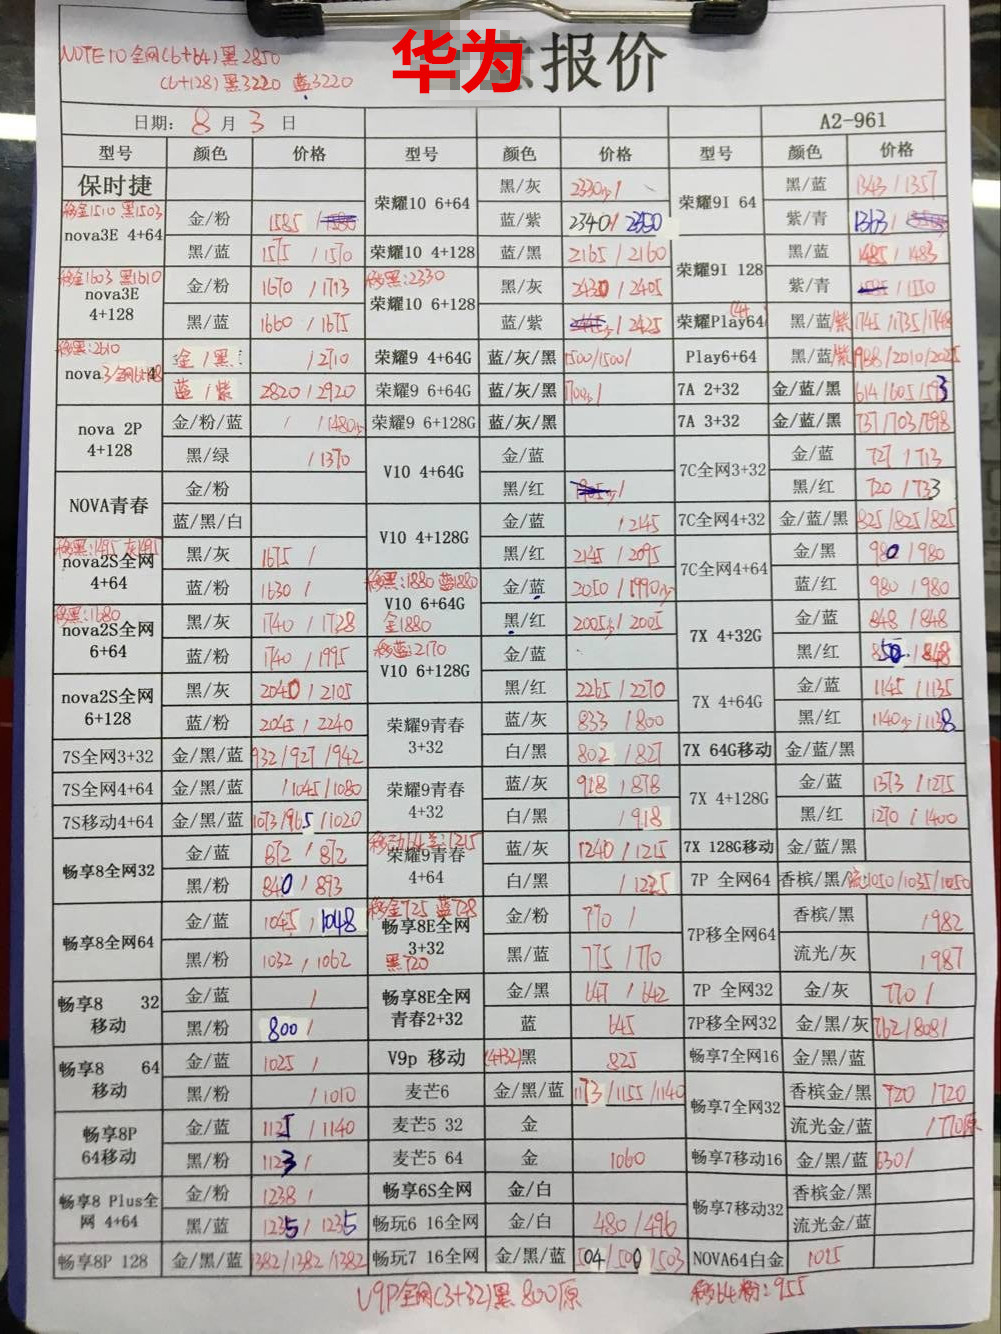 华为 报价
NOTE10全网(6+64)黑2850
(6+128)黑3220 蓝3220
日期: 8月3日 A2-961
型号 颜色 价格 型号 颜色 价格 型号 颜色 价格
保时捷 荣耀10 6+64 黑/灰 荣耀9I 64 黑/蓝 1343/1357
移金1510 黑1503
nova3E 4+64 金/粉 1585 蓝/紫 2340/2350 紫/青 1363/
黑/蓝 1575/1570 荣耀10 4+128 蓝/黑 2165/2160 荣耀9I 128 黑/蓝 1485/1483
移金1603 黑1610 移黑:2330
nova3E 4+128 金/粉 1670/1713 荣耀10 6+128 黑/灰 2430/2405 紫/青 /1550
黑/蓝 1660/1675 蓝/紫 /2425 荣耀Play64 (4+ 黑/蓝/紫 1745/1735/1748
移黑:2610
nova3/全网6+128 金/黑: /2710 荣耀9 4+64G 蓝/灰/黑 1500/1500/ Play6+64 黑/蓝/紫 1988/2010/2025
蓝/紫 2820/2920 荣耀9 6+64G 蓝/灰/黑 7A 2+32 金/蓝/黑 614/605/593
nova 2P 4+128 金/粉/蓝 荣耀9 6+128G 蓝/灰/黑 7A 3+32 金/蓝/黑 737/703/698
黑/绿 /1370 V10 4+64G 金/蓝 7C全网3+32 金/蓝 727/713
NOVA青春 金/粉 黑/红 黑/红 720/733
蓝/黑/白 V10 4+128G 金/蓝 /2145 7C全网4+32 金/蓝/黑 825/825/825
移黑:1495 灰1495
nova2S全网 4+64 黑/灰 1675/ 黑/红 2145/2095 7C全网4+64 金/黑 980/980
移黑:1880 蓝1880
蓝/粉 1630/ V10 6+64G 金/蓝 2050/1990 蓝/红 980/980
移黑:1680 金1880
nova2S全网 6+64 黑/灰 1740/1728 黑/红 2005/2005 7X 4+32G 金/蓝 848/848
移蓝:2170
蓝/粉 1740/1995 V10 6+128G 金/蓝 黑/红 850/848
nova2S全网 6+128 黑/灰 2040/2105 黑/红 2265/2270 7X 4+64G 金/蓝 1145/1135
蓝/粉 2045/2240 荣耀9青春 3+32 蓝/灰 833/800 黑/红 1140/1138
7S全网3+32 金/黑/蓝 932/927/942 白/黑 802/827 7X 64G移动 金/蓝/黑
7S全网4+64 金/黑/蓝 /1045/1080 荣耀9青春 4+32 蓝/灰 918/878 7X 4+128G 金/蓝 1373/1275
7S移动4+64 金/黑/蓝 1073/965/1020 白/黑 /918 黑/红 1270/1400
畅享8全网32 金/蓝 872/872 荣耀9青春 4+64 蓝/灰 1240/1215 7X 128G移动 金/蓝/黑
黑/粉 840/893 白/黑 /1225 7P 全网64 香槟/黑/ 1050/1035/1050
移金725 蓝728
畅享8全网64 金/蓝 1045/1048 畅享8E全网 3+32 金/粉 770/ 7P移全网64 香槟/黑 /982
黑720
黑/粉 1032/1062 黑/蓝 775/770 流光/灰 /987
畅享8 32 移动 金/蓝 / 畅享8E全网 青春2+32 金/黑 647/642 7P 全网32 金/灰 770/
黑/粉 800/ 蓝 645 7P移全网32 金/黑/灰 762/808/
畅享8 64 移动 金/蓝 1025/ V9p 移动 (4+32)黑 825 畅享7全网16 金/黑/蓝
黑/粉 /1010 麦芒6 金/黑/蓝 1173/1155/1140 畅享7全网32 香槟金/黑 720/720
畅享8P 64移动 金/蓝 1125/1140 麦芒5 32 金 流光金/蓝 /770原
黑/粉 1123/ 麦芒5 64 金 1060 畅享7移动16 金/黑/蓝 630/
畅享8 Plus全网 4+64 金/粉 1238/ 畅享6S全网 金/白 畅享7移动32 香槟金/黑
黑/蓝 1235/1235 畅玩6 16全网 金/白 480/496 流光金/蓝
畅享8P 128 金/黑/蓝 1382/1382/1382 畅玩7 16全网 金/黑/蓝 504/500/503 NOVA64白金 1015
V9P全网(3+32)黑 800原 移64粉:955